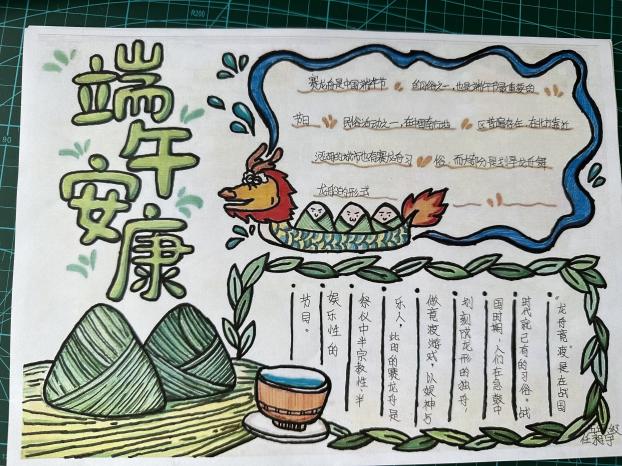 端午安康
赛龙舟是中国端午节 的习俗之一，也是端午节最重要的
节日 民俗活动之一，在中国南 区普遍存在，在北方靠近
河湖的城市也有赛龙舟习 俗，而大部分是划旱龙舟舞
龙船的形式
"龙舟竞渡"是在战国
时代就已有的习俗。战
国时期，人们在急鼓中
划刻成龙形的独舟，
做竞渡游戏，以娱神与
乐人，此时的赛龙舟是
祭仪中半宗教性、半
娱乐性的
节目。